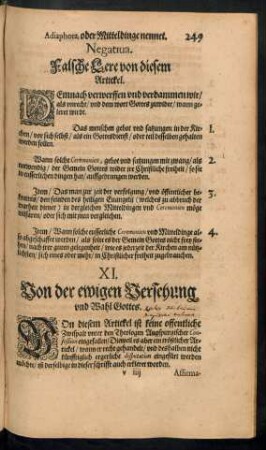 Adiaphora, oder Mitteldinge nennet. 249
Negatiua.
Falsche Lere von diesem
Artickel.
DEmnach verwerffen vnd verdammen wir/
als vnrecht/ vnd dem wort Gottes zuwider/ wann ge-
leret wirdt.
Das menschen gebot vnd satzungen in der Kir- 1.
chen/ vor sich selbst/ als ein Gottesdienst/ oder teil desselben gehalten
werden sollen.
Wann solche Ceremonien, gebot vnd satzungen mit zwang/ als 2.
notwendig/ der Gemein Gottes wider jr Christliche freiheit/ so sie
in eusserlichen dingen hat/ auffgedrungen werden.
Item/ Das man zur zeit der verfolgung/ vnd öffentlicher be- 3.
kantnus/ den feinden des heiligen Euangelij (welches zu abbruch der
warheit dienet) in dergleichen Mitteldingen vnd Ceremonien möge
wilfaren/ oder sich mit jnen vergleichen.
Item/ Wann solche eusserliche Ceremonien vnd Mitteldinge al- 4.
so abgeschaffet werden/ als solte es der Gemein Gottes nicht frey ste-
hen/ nach jrer guten gelegenheit/ wie es jederzeit der Kirchen am nütz-
lichsten/ sich eines oder mehr/ in Christlicher freiheit zugebrauchen.
XI.
Von der ewigen Versehung
vnd Wahl Gottes.
VOn diesem Artickel ist keine offentliche
Zwispalt vnter den Theologen Augspurgischer Con-
fession eingefallen/ Dieweil es aber ein tröstlicher Ar-
tickel/ wann er recht gehandelt/ vnd deshalben nicht
künfftiglich ergerliche disputation eingefüret werden
möchte/ ist derselbige in dieser schrifft auch erkleret worden.
v iij Affirma-